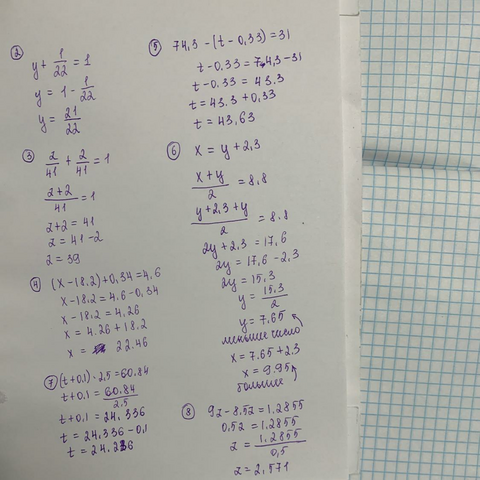 ② y + 1/22 = 1
y = 1 - 1/22
y = 21/22
③ z/41 + 2/41 = 1
z+2/41 = 1
z+2 = 41
z = 41-2
z = 39
④ (x-18.2)+0,34=4,6
x-18.2=4,6-0,34
x-18.2 = 4,26
x = 4.26+18.2
x = 22.46
⑦ (t+0,1)·2,5=60,84
t+0,1 = 60,84/2,5
t+0,1 = 24,336
t = 24,336-0,1
t = 24,236
⑤ 74,3-(t-0,33)=31
t-0,33 = 74,3-31
t-0.33 = 43.3
t = 43.3+0,33
t = 43,63
⑥ x = y+2,3
x+y/2 = 8,8
y+2,3+y/2 = 8.8
2y+2,3 = 17,6
2y = 17,6-2,3
2y = 15,3
y = 15,3/2
y = 7,65
меньшее число
x = 7.65+2,3
x = 9.95
большее
⑧ 9z-8.5z=1.2855
0,5z = 1,2855
z = 1,2855/0,5
z = 2,571